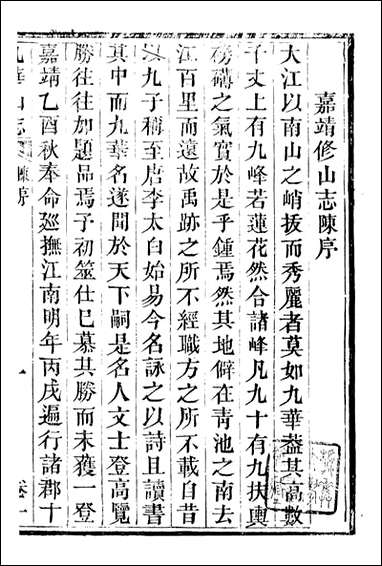 嘉靖修山志陳序
大江以南山之峭拔而秀麗者莫如九華葢其高數
千丈上有九峰若蓮花然合諸峰凡九十有九扶輿
磅礴之氣實於是乎鍾焉然其地僻在青池之南去
江百里而遠故禹跡之所不經職方之所不載自昔
以九子稱至唐李太白始易今名詠之以詩且讀書
其中而九華名遂聞於天下嗣是名人文士登高覽
勝往往加題品焉予初筮仕已慕其勝而未獲一登
嘉靖乙酉秋奉命廵撫江南明年丙戌遍行諸郡十
九華山志 陳序 一 卷十